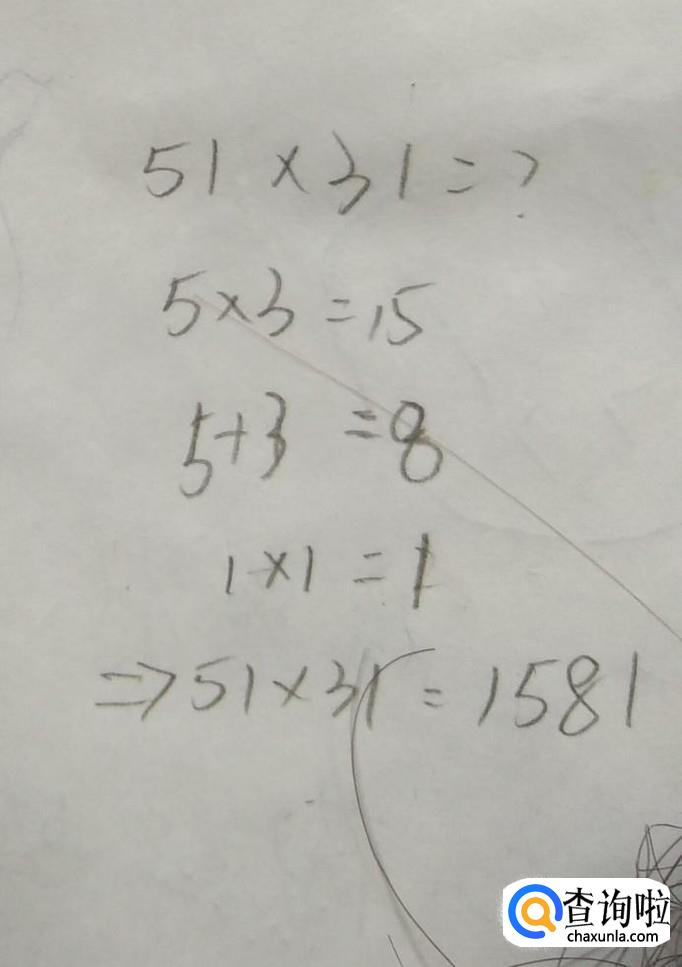 51 × 31 = ?
5×3 = 15
5+3 = 8
1×1 = 1
⇒ 51×31 = 1581
查询啦
chaxunla.com